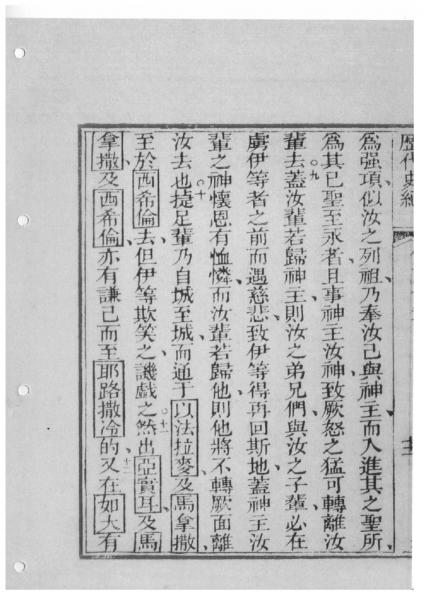 歷代史
爲强項似汝之列祖乃奉汝己與神主而入進其之聖所
爲其已聖至永者且事神主汝神致厥怒之猛可轉離汝
輩去○九蓋汝輩若歸神主則汝之弟兄們與汝之子輩必在
虜伊等者之前而遇慈悲致伊等得再回斯地蓋神主汝
輩之神懷恩有恤憐而汝輩若歸他則他將不轉厥面離
汝去也○十捷足輩乃自城至城而通于以法拉麥及馬拿撒
至於西希倫去但伊等欺笑之譏戲之○十一然出亞實耳及馬
拿撒及西希倫亦有謙己而至耶路撒冷的十二又在如大有